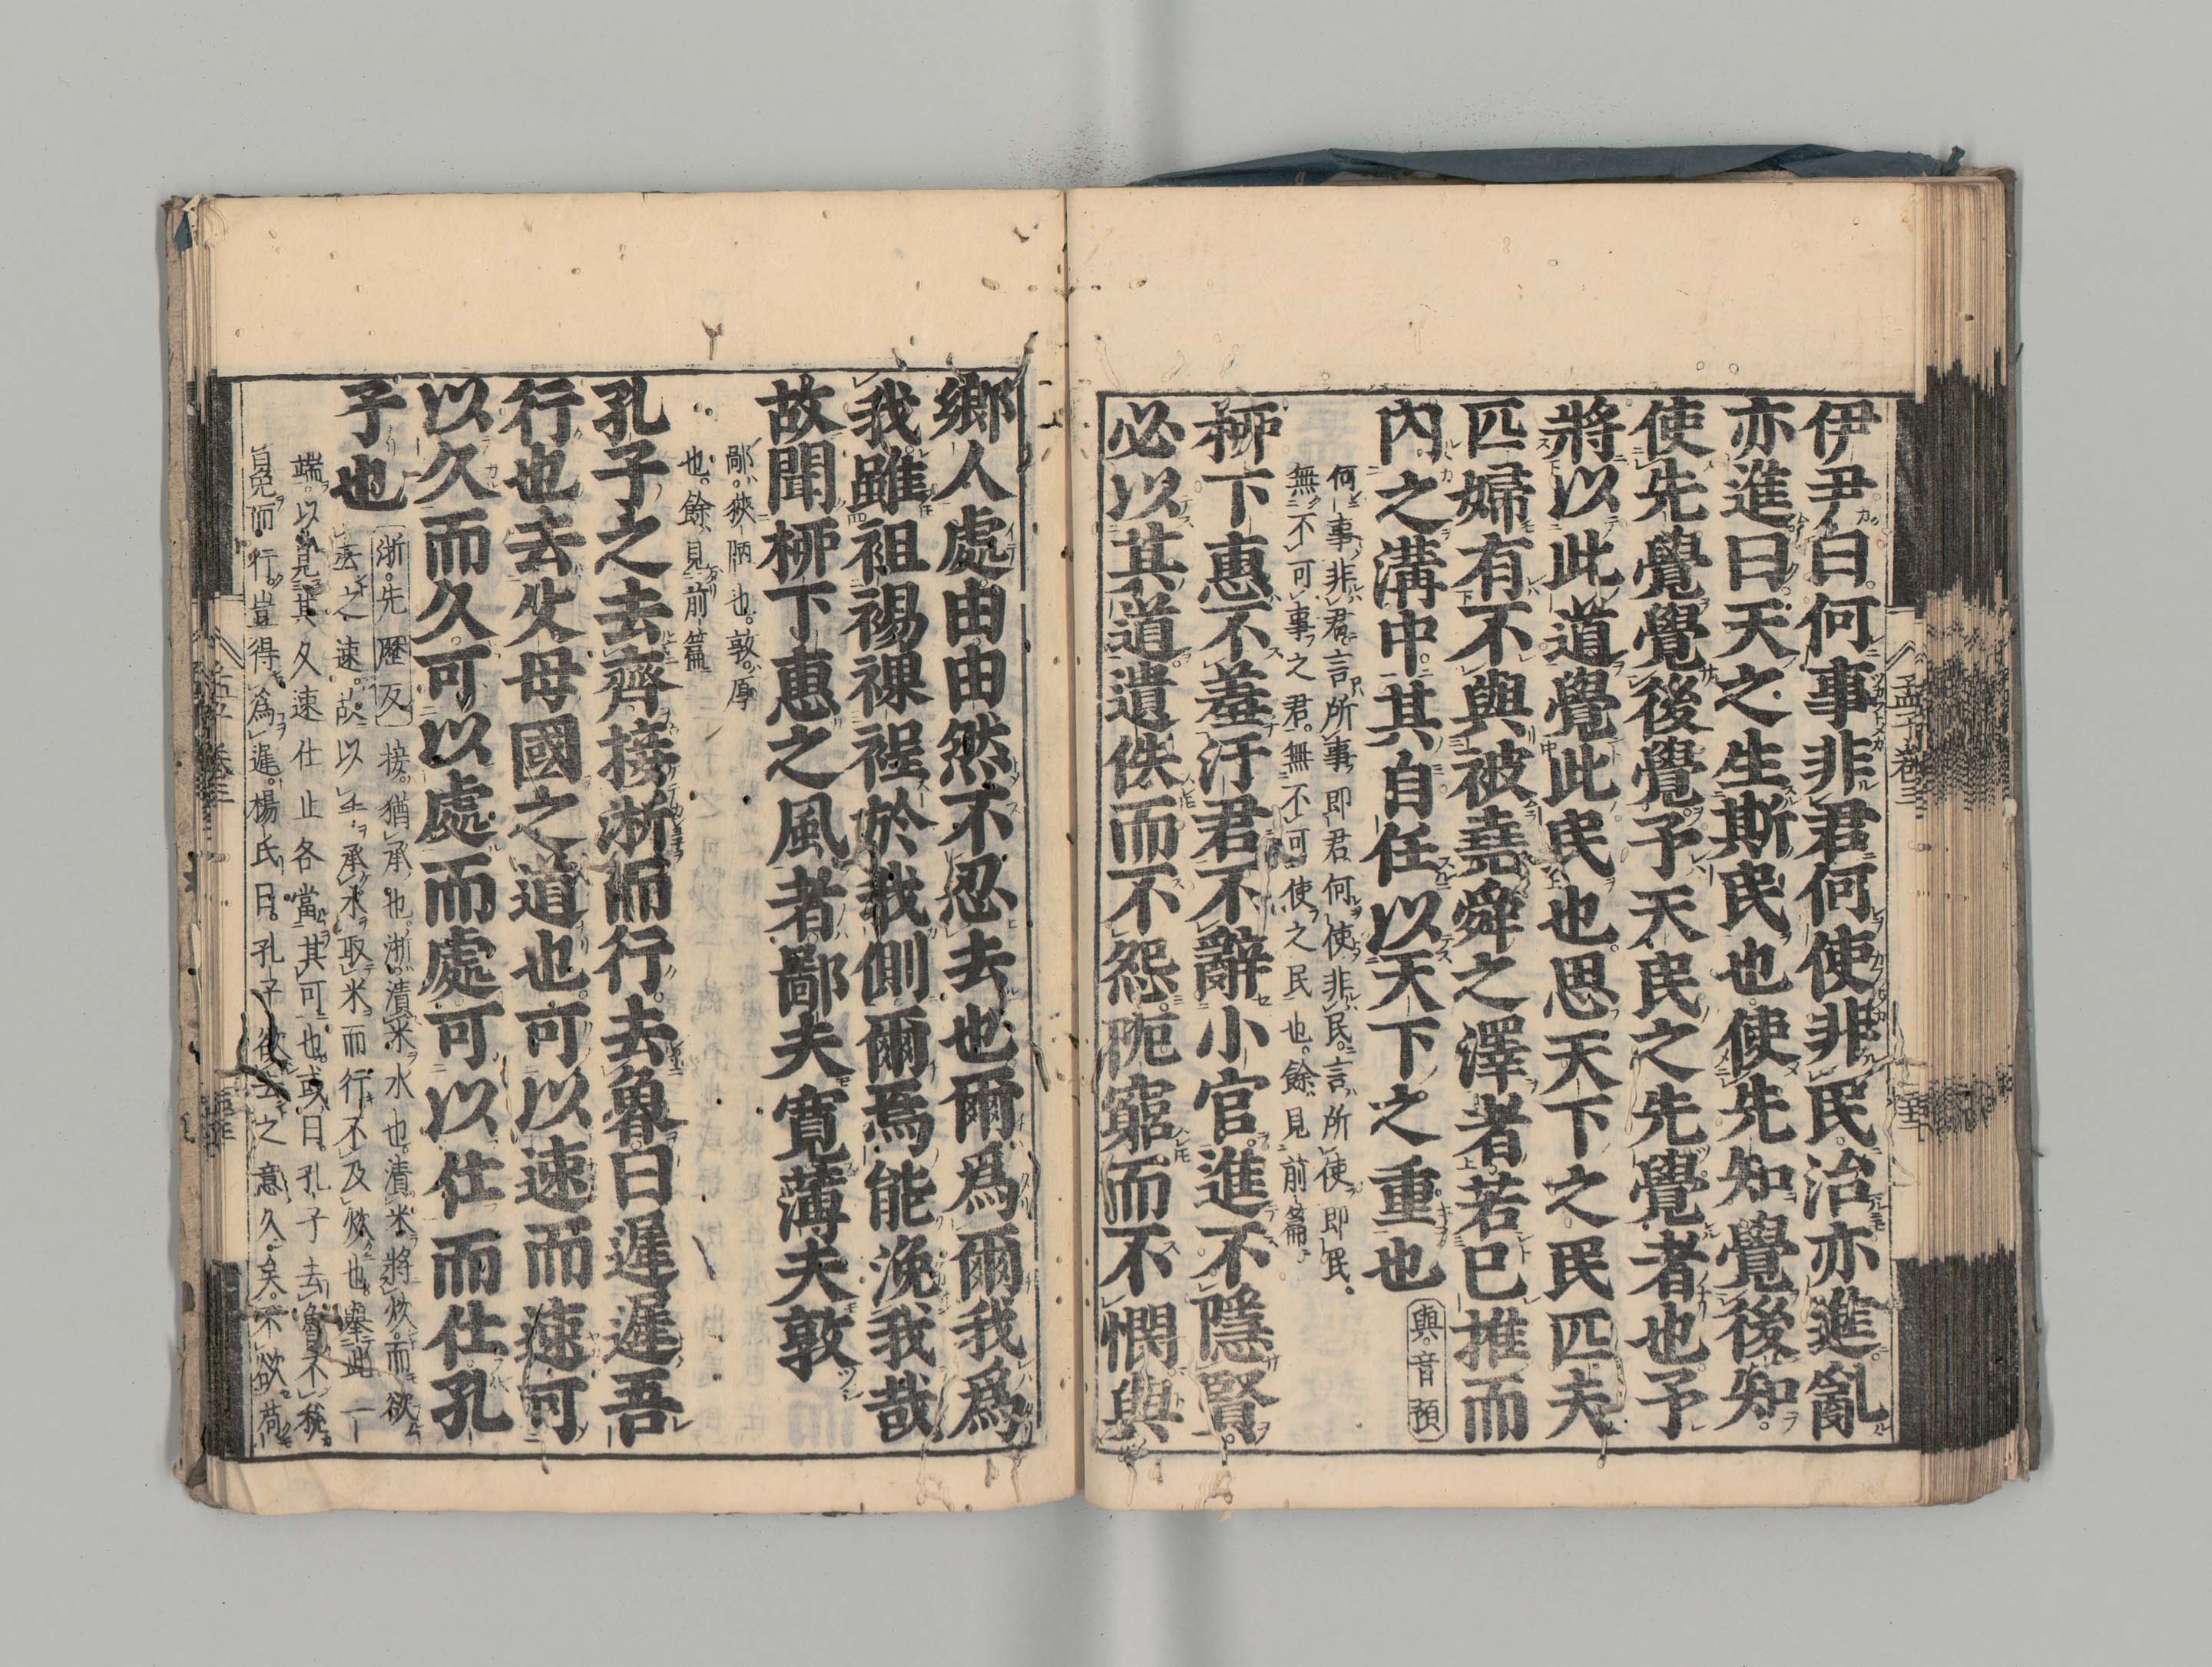 伊尹曰何事非君何使非民治亦進亂
亦進曰天之生斯民也使先知覺後知
使先覺覺後覺予天民之先覺者也予
將以此道覺此民也思天下之民匹夫
匹婦有不與被堯舜之澤者若已推而
內之溝中其自任以天下之重也 與音預
何事非君言所事即君何使非民言所使即民
無不可事之君無不可使之民也餘見前篇
柳下惠不羞汙君不辭小官進不隱賢
必以其道遺佚而不怨阨窮而不憫與
孟子卷三
鄉人處由由然不忍去也爾爲爾我爲
我雖袒裼裸裎於我側爾焉能浼我哉
故聞柳下惠之風者鄙夫寬薄夫敦
鄙狹陋也敦厚
也餘見前篇
孔子之去齊接淅而行去魯曰遲遲吾
行也去父母國之道也可以速而速可
以久而久可以處而處可以仕而仕孔
子也 淅先歷反 接猶承也淅漬米水也漬米將炊而欲
去之速故以手承水取米而行不及炊也舉此一
端以見其久速仕止各當其可也或曰孔子去魯不稅
冕而行豈得爲遲楊氏曰孔子欲去之意久矣不欲苟